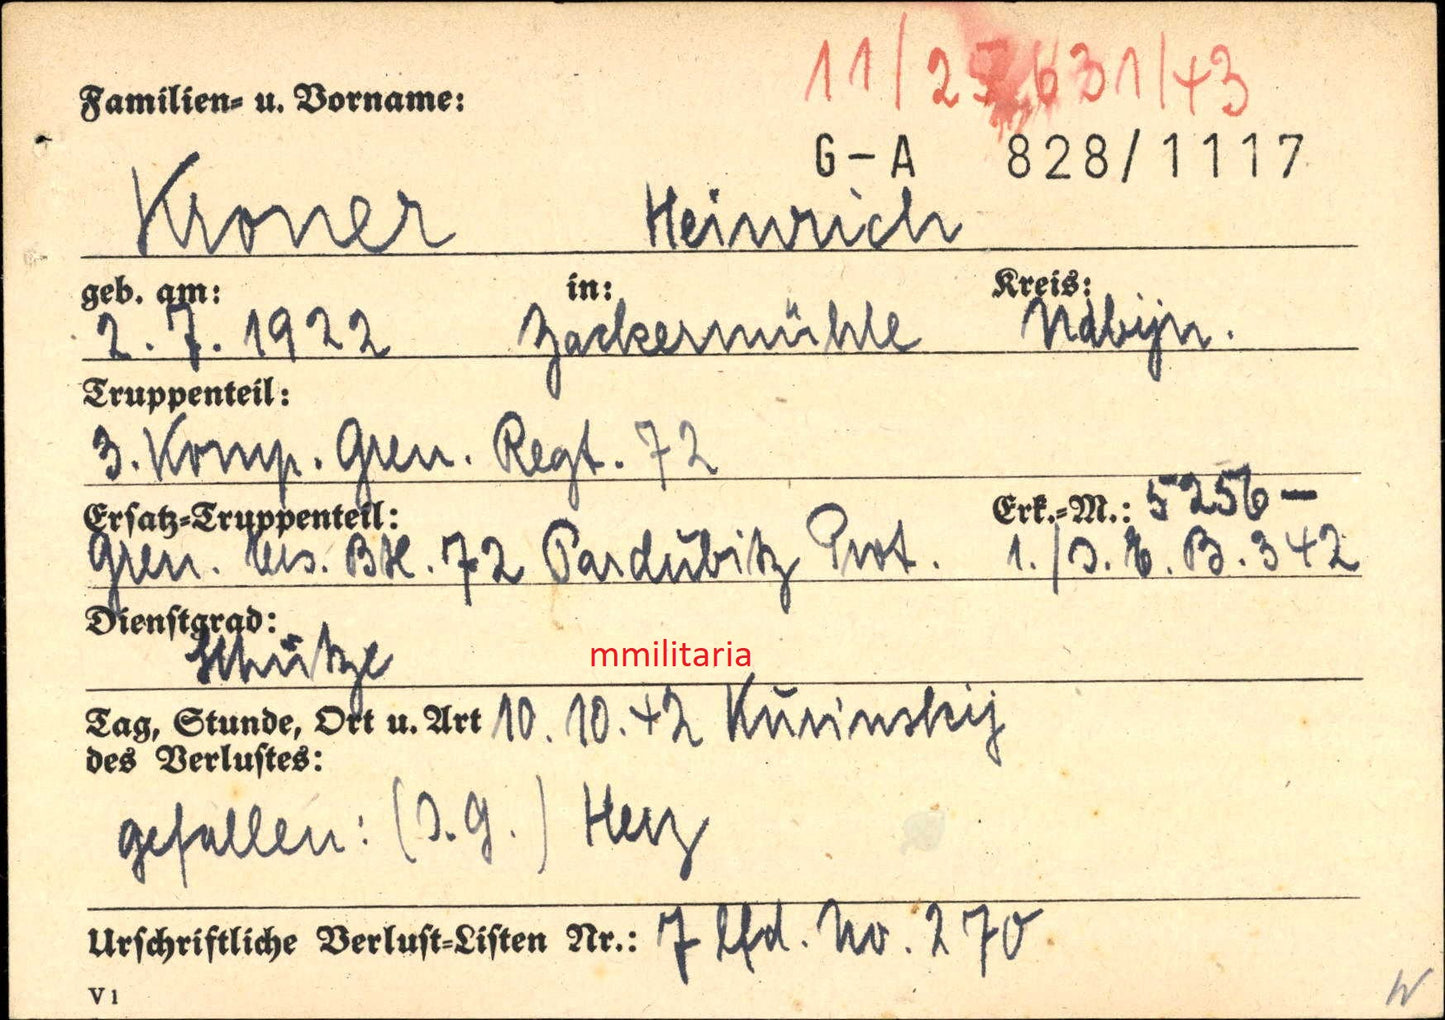 11/25631/43
Familien- u. Vorname:
G-A 828/1117
Kroner Heinrich
geb. am: in: Kreis:
2.7.1922 Zackermühle Ndbyn.
Truppenteil:
3. Komp. Gren. Regt. 72
Ersatz-Truppenteil: Erk.-M.: 5256-
Gren. Ers. Btl. 72 Pardubitz Prot. 1./J.E.B. 342
Dienstgrad:
Schütze
mmilitaria
Tag, Stunde, Ort u. Art 10.10.42 Kurinskij
des Verlustes:
gefallen: (J.G.) Herz
Urschriftliche Verlust-Listen Nr.: 7 lfd. No. 270
V 1
W